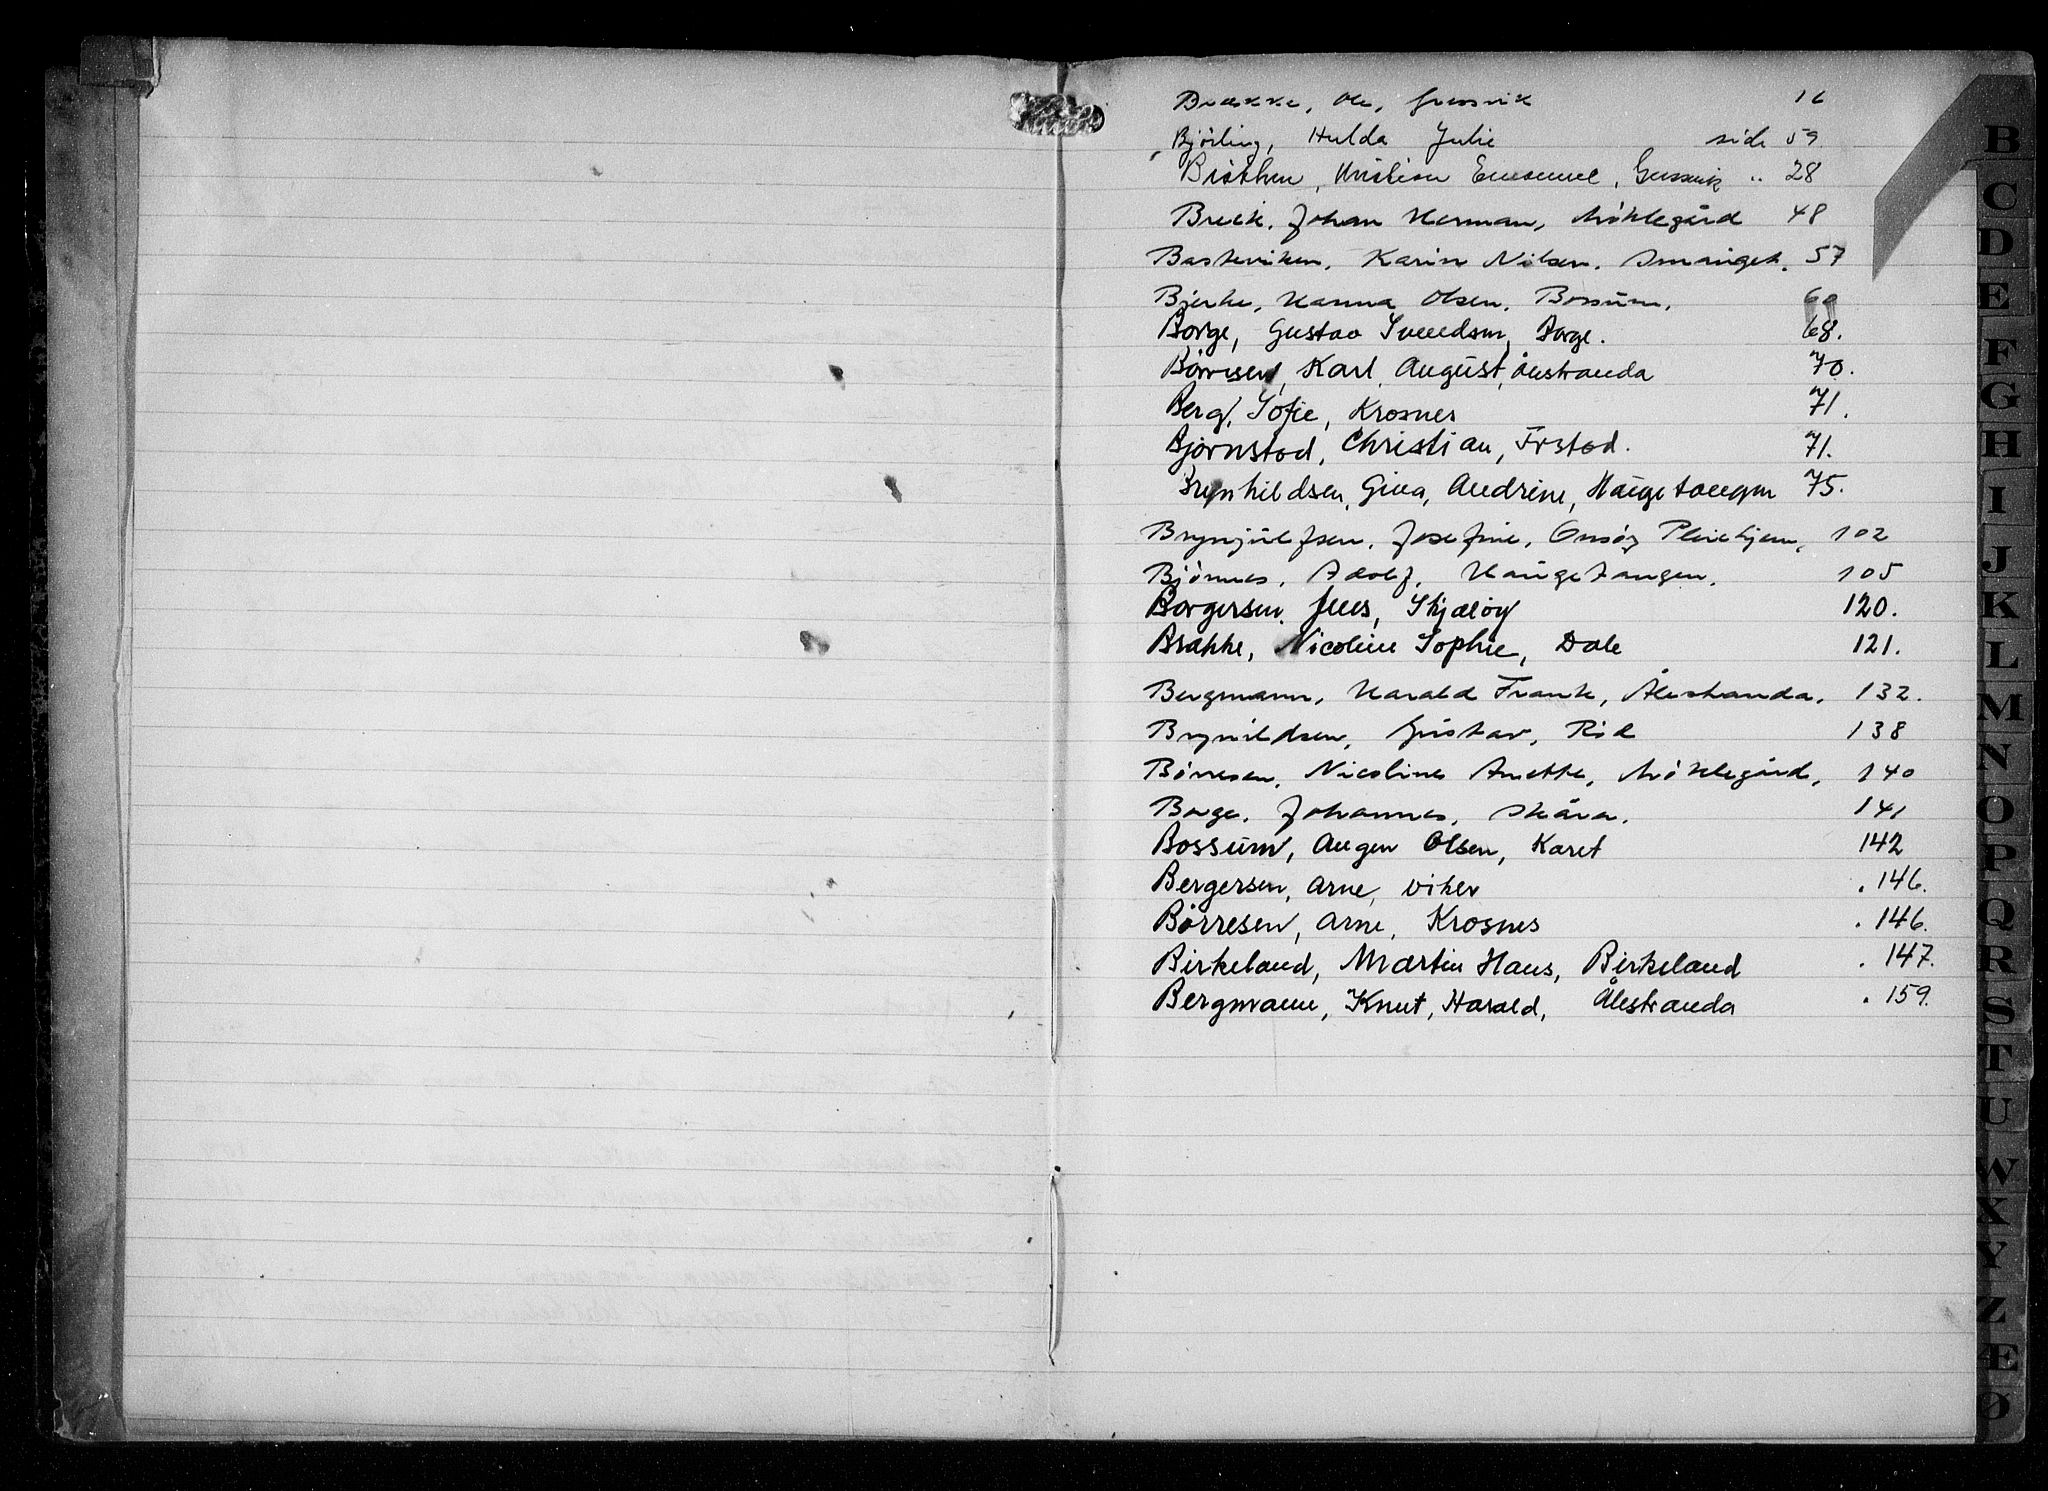 Brække, Ole, Gressvik 16
Bjørling, Hulda Julie side 59.
Kristian Emanuel, Gressvik " 28
Breek, Johan Herman, Møklegård 48
Basteviken, Karin Nilsen. Smauget. 57
Bjerke, Hanna Olsen. Bossum. 60
Borge, Gustav Svendsen, Borge. 68.
Børresen, Karl August, Ålestranda 70.
Berg, Sofie, Krosnes 71.
Bjørnstad, Christian, Frstad. 71.
Brynhildsen, Gina, Andrine, Haugetangen 75.
Brynjulfsen, Josefine, Onsøy Pleiehjem, 102
Bjørnnes, Adolf, Haugetangen. 105
Borgersen, Jens, Skjæløy 120.
Brække, Nicoline Sophie, Dale 121.
Bergmann, Harald Frank, Ålestranda, 132.
Brynildsen, Gustav, Rød 138
Børresen, Nicoline Anette, Møklegård, 140
Borge, Johannes, Skåra. 141
Bossum, Augen Olsen, Karet 142
Bergersen, Arne, Viker . 146.
Børresen, Arne, Krosnes . 146.
Birkeland, Martin Hans, Birkeland . 147.
Bergmann, Knut, Harald, Ålestranda . 159.
B
C
D
E
F
G
H
I
J
K
L
M
N
O
P
Q
R
S
T
U
W
X
Y
Z
Æ
Ø